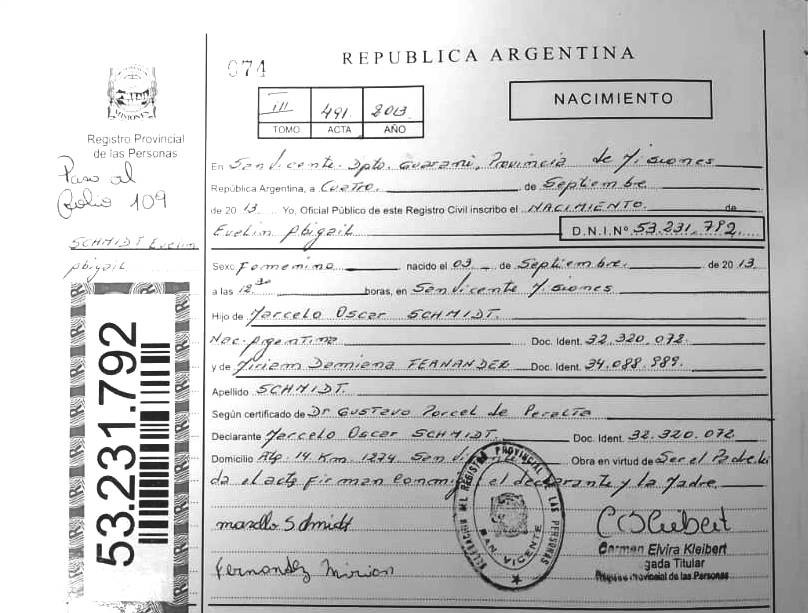 074
REPUBLICA ARGENTINA
III 491 2013
TOMO ACTA AÑO
NACIMIENTO
MISIONES
Registro Provincial
de las Personas
Paso al
folio 109
SCHMIDT Evelin
Abigail
53.231.792
En San Vicente. Dpto. Guarani, Provincia de Misiones
República Argentina, a Cuatro. de Septiembre
de 2013 Yo, Oficial Público de este Registro Civil inscribo el NACIMIENTO. de
Evelin Abigail D.N.I.Nº 53.231.792
Sexo Femenino nacido el 03 de Septiembre. de 2013.
a las 12.30 horas, en San Vicente Misiones
Hijo de Marcelo Oscar SCHMIDT.
Nac. Argentina Doc. Ident. 32.320.072
y de Miriam Damiana FERNANDEZ Doc. Ident. 34.088.989.
Apellido SCHMIDT.
Según certificado de Dr Gustavo Porcel de Peralta
Declarante Marcelo Oscar SCHMIDT. Doc. Ident. 32.320.072
Domicilio Km. 1274 San Obra en virtud de Ser el Padre. Lei
da el acta firman conm el declarante y la Madre.
DELEGACION DEL REGISTRO PROVINCIAL DE LAS PERSONAS
SAN VICENTE
Schmidt
Fernandez Mirian
Carmen Elvira Kleibert
gada Titular
Registro Provincial de las Personas